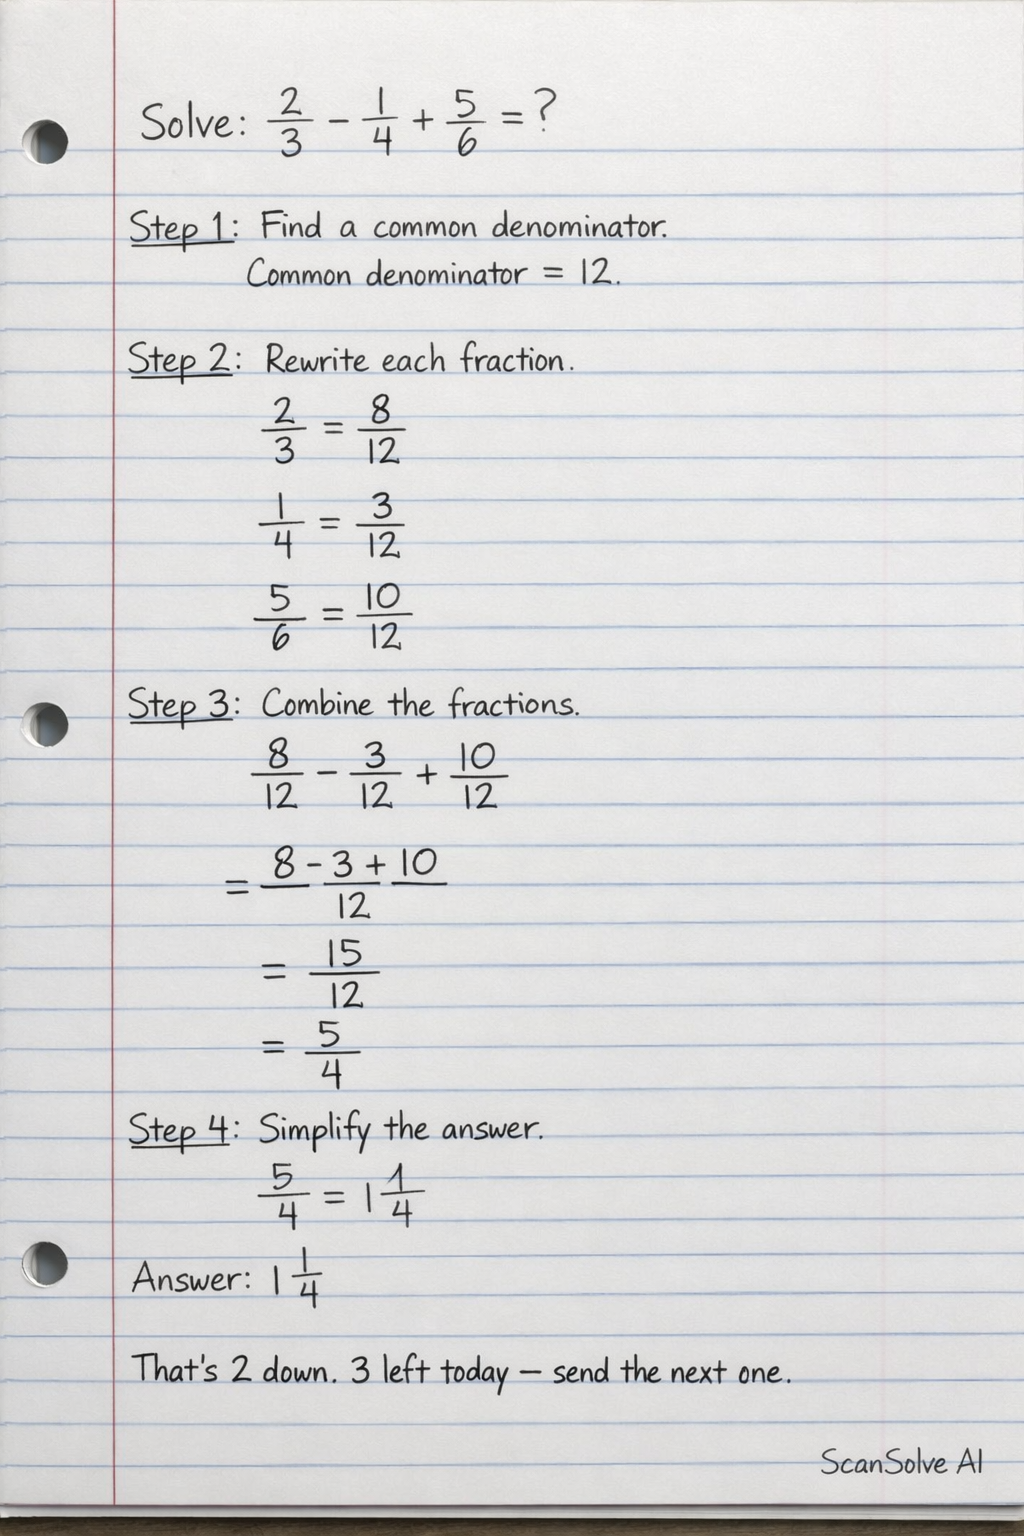 Solve: 2/3 - 1/4 + 5/6 = ?
Step 1: Find a common denominator.
Common denominator = 12.
Step 2: Rewrite each fraction.
2/3 = 8/12
1/4 = 3/12
5/6 = 10/12
Step 3: Combine the fractions.
8/12 - 3/12 + 10/12
= 8 - 3 + 10 / 12
= 15/12
= 5/4
Step 4: Simplify the answer.
5/4 = 1 1/4
Answer: 1 1/4
That's 2 down. 3 left today — send the next one.
ScanSolve AI